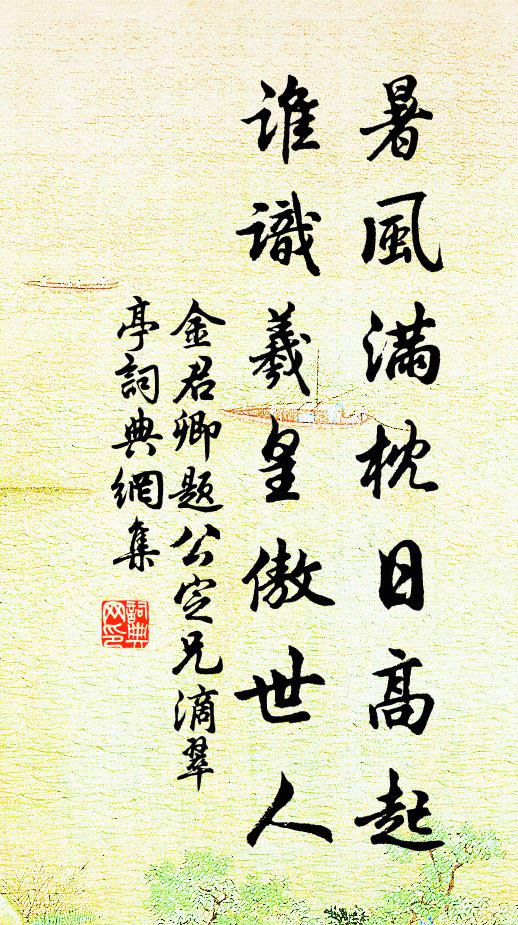 暑風滿枕日高起
誰識羲皇傲世人
金君卿题公定兄滴翠
亭詞典網集
詞典
网印